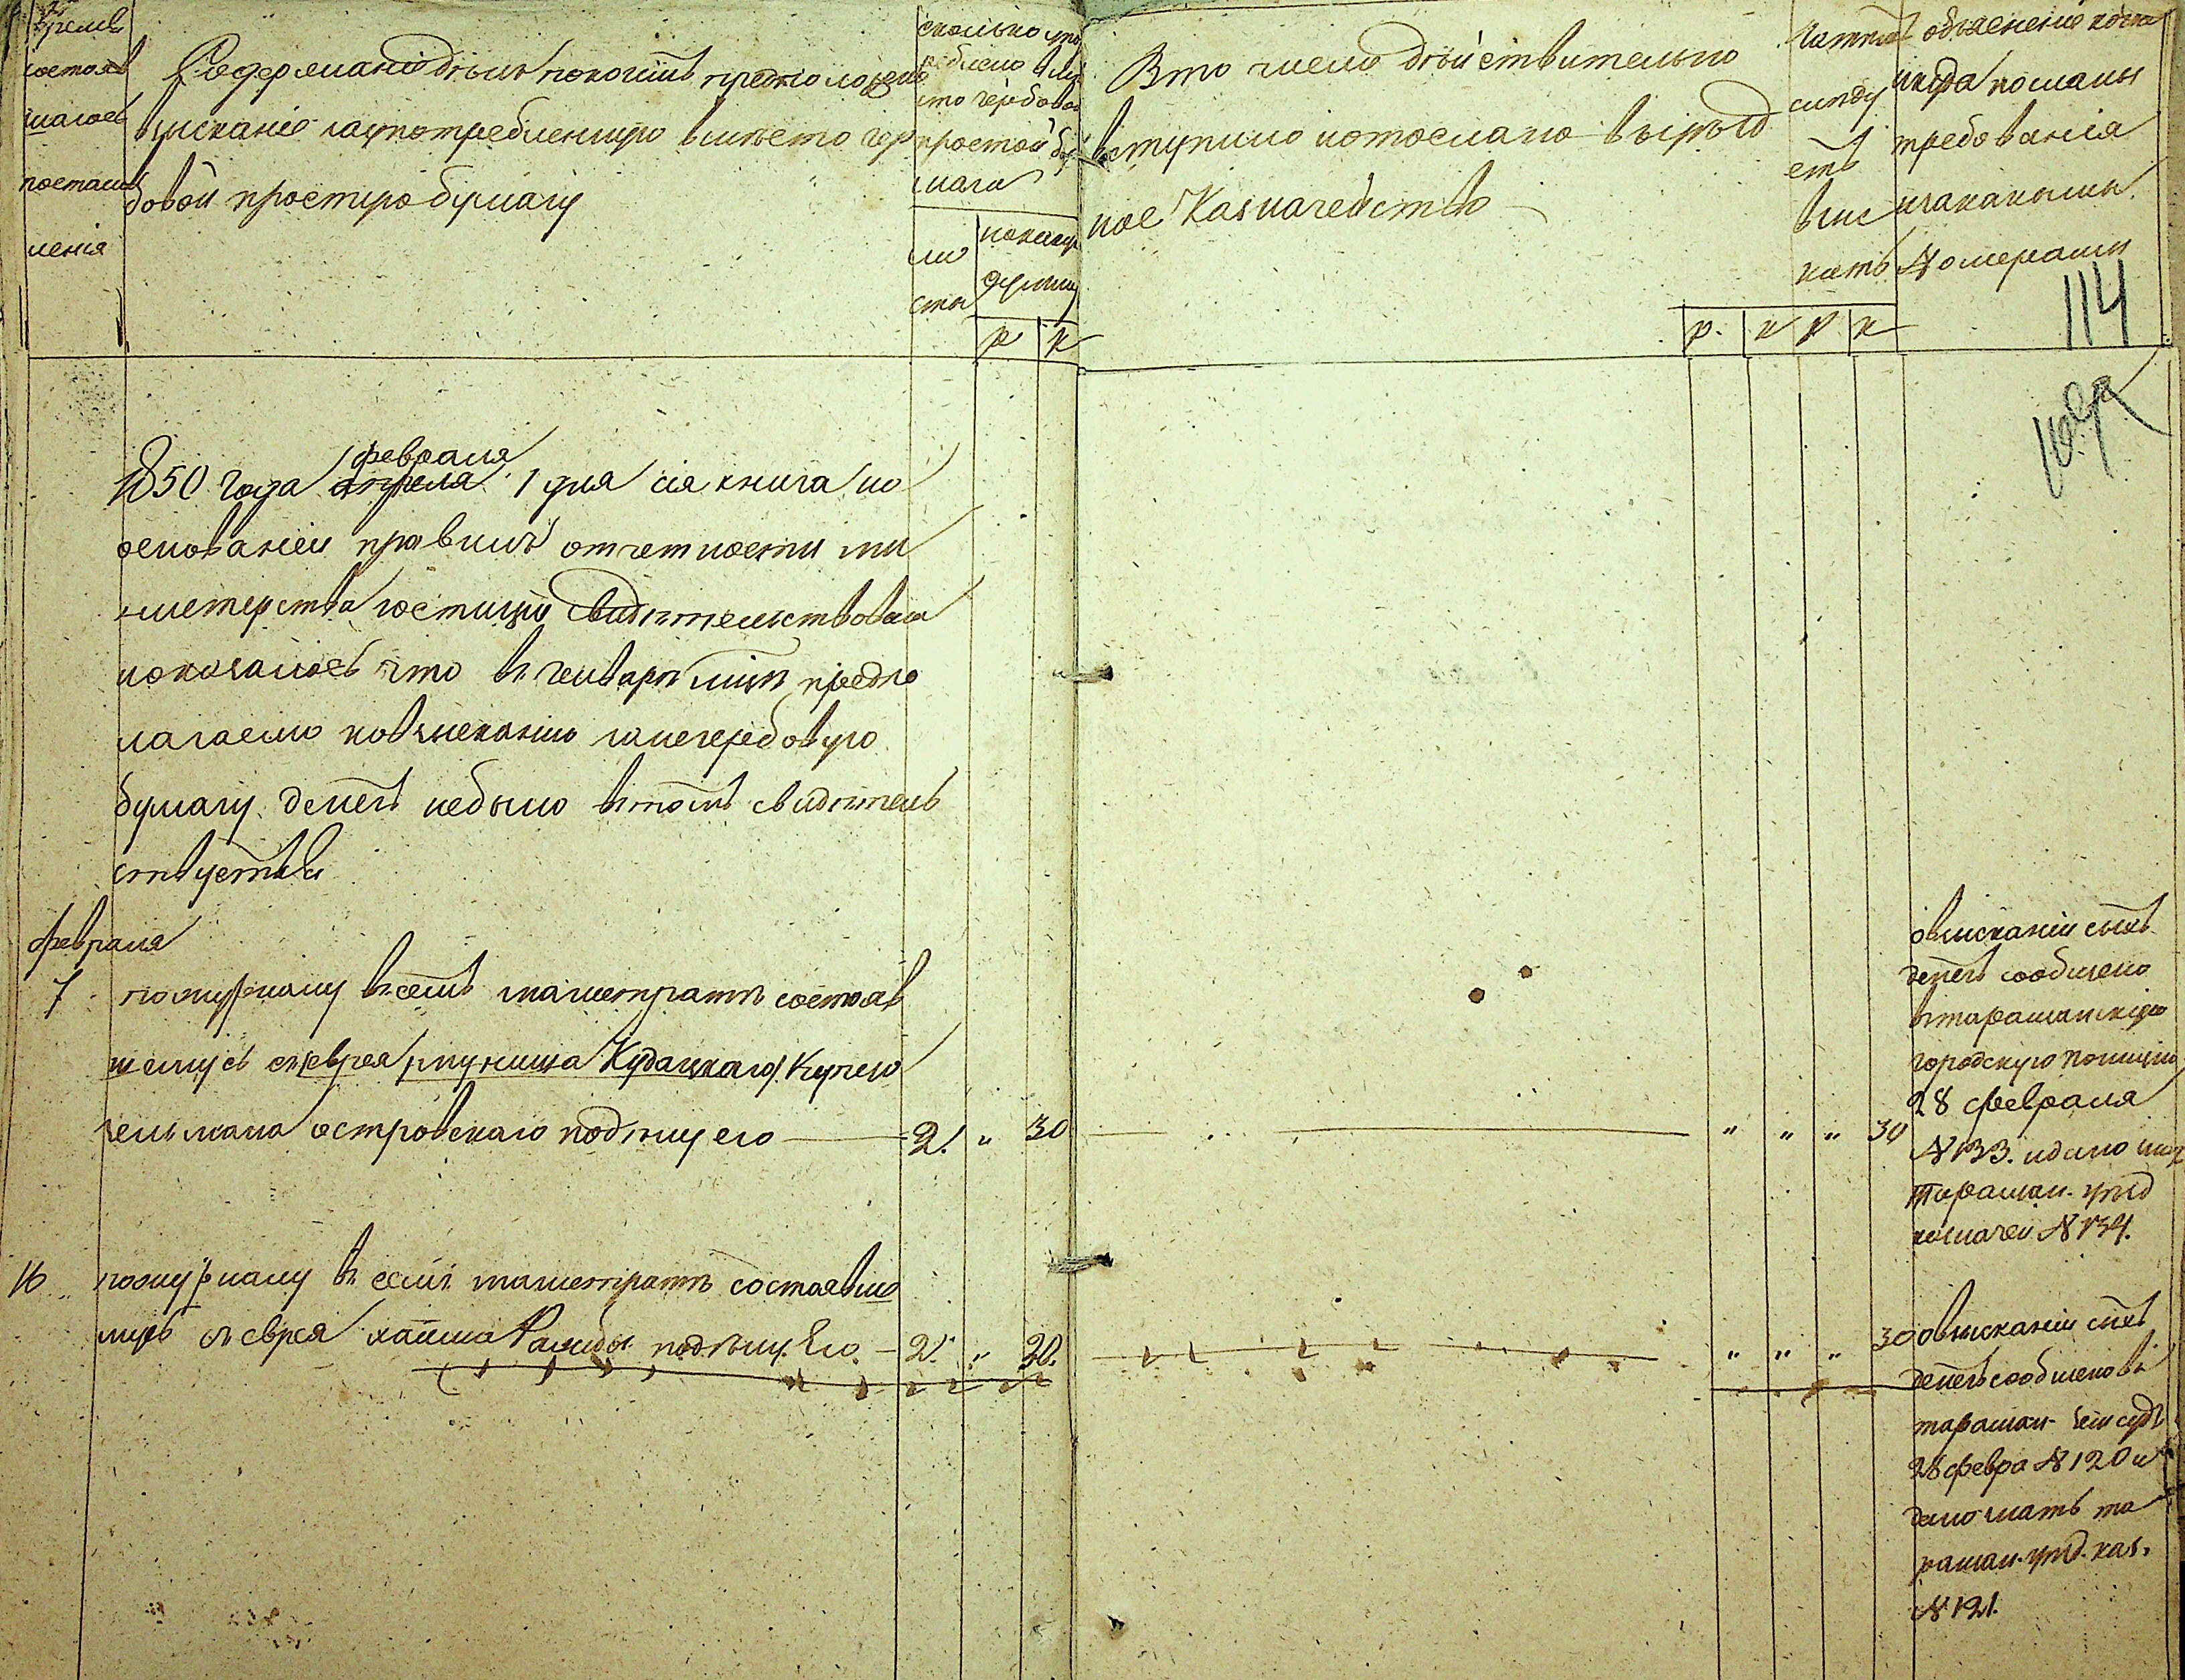 время
состояв
шагось
постанов
ленія
Содержаніе дѣлъ покоимъ предположено
взысканіе заупотребленную вмѣсто гер
бовой простую бумагу
сколько упо
треблено вмѣ
сто гербовой
простой бу
маги
ли
сты
наκакую
сумму
р к
Вто число дѣйствительно
вступило иотослано въуѣзд
ное Казначейство
Затѣмъ
слѣду
етъ
взыс
кать
р. к р к
объясненіе когда
икуда посланы
требованія
изакакими
Номерами
114
1850 года апреля февраля 1 дня сія книга по
основаніи правилъ отчетности ми
нистерства юстиціи свидѣтельствована
иоказалось что въ генварѣ мцѣ предпо
лагаемо ковзысканію занегербовую
бумагу денегъ небыло вътомъ свидѣтель
ствуетъ
февраля
7 пожурналу въсемъ магистратѣ состояв
шемусь съ еврея Кудацкаго Купцо
зельмана островскаго подѣлу его 2. " 30 " " " 30
овзысканіи сихъ
денегъ сообщено
втаращанскую
городскую полицію
28 февраля
№ 133. идано знать
Таращан. уѣзд
казначей № 134.
16 пожурналу въ семъ магистратѣ состоявше
мусь съ еврея хаима подѣлу Его 2. " 30. " " " 30
овзысканіи сихъ
денегъ сообщено въ
таращан. зем судъ
28 февра № 120 и
дано знать та
ращан. уѣзд. каз.
№ 121.